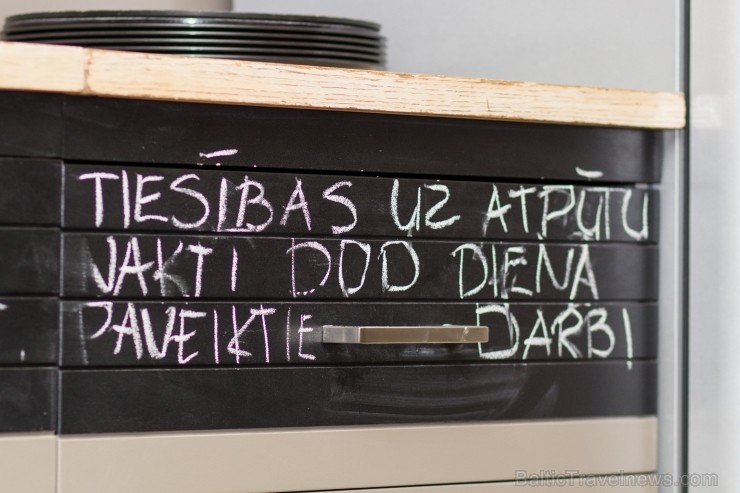 TIESĪBAS UZ ATPŪTU
NAKTI DOD DIENĀ
PAVEIKTIE DARBI
BalticTravelnews.com